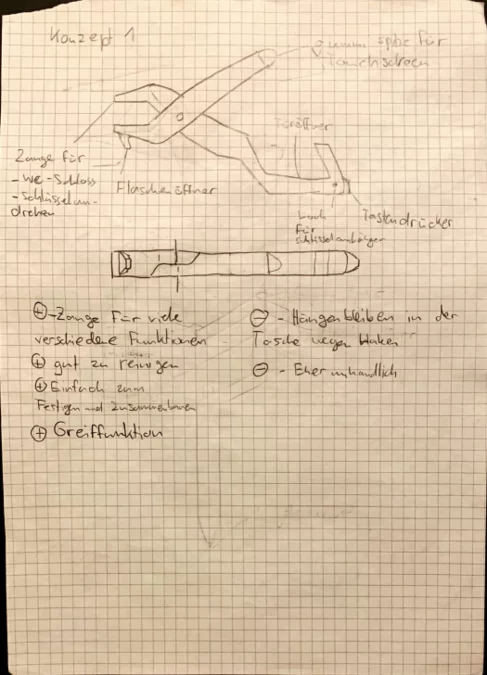 Konzept 1
Gummispitze für
Touchscreen
Türöffner
Zange für
- WC-Schloss
- Schlüssel um-
drehen
Flaschenöffner
Loch
für
Schlüsselanhänger
Tastendrücker
⊕ - Zange für viele
verschiedene Funktionen
⊕ gut zu reinigen
⊕ Einfach zum
Fertigen und Zusammenbauen
⊕ Greiffunktion
⊖ - Hängenbleiben in der
Tasche wegen Haken
⊖ - Eher unhandlich